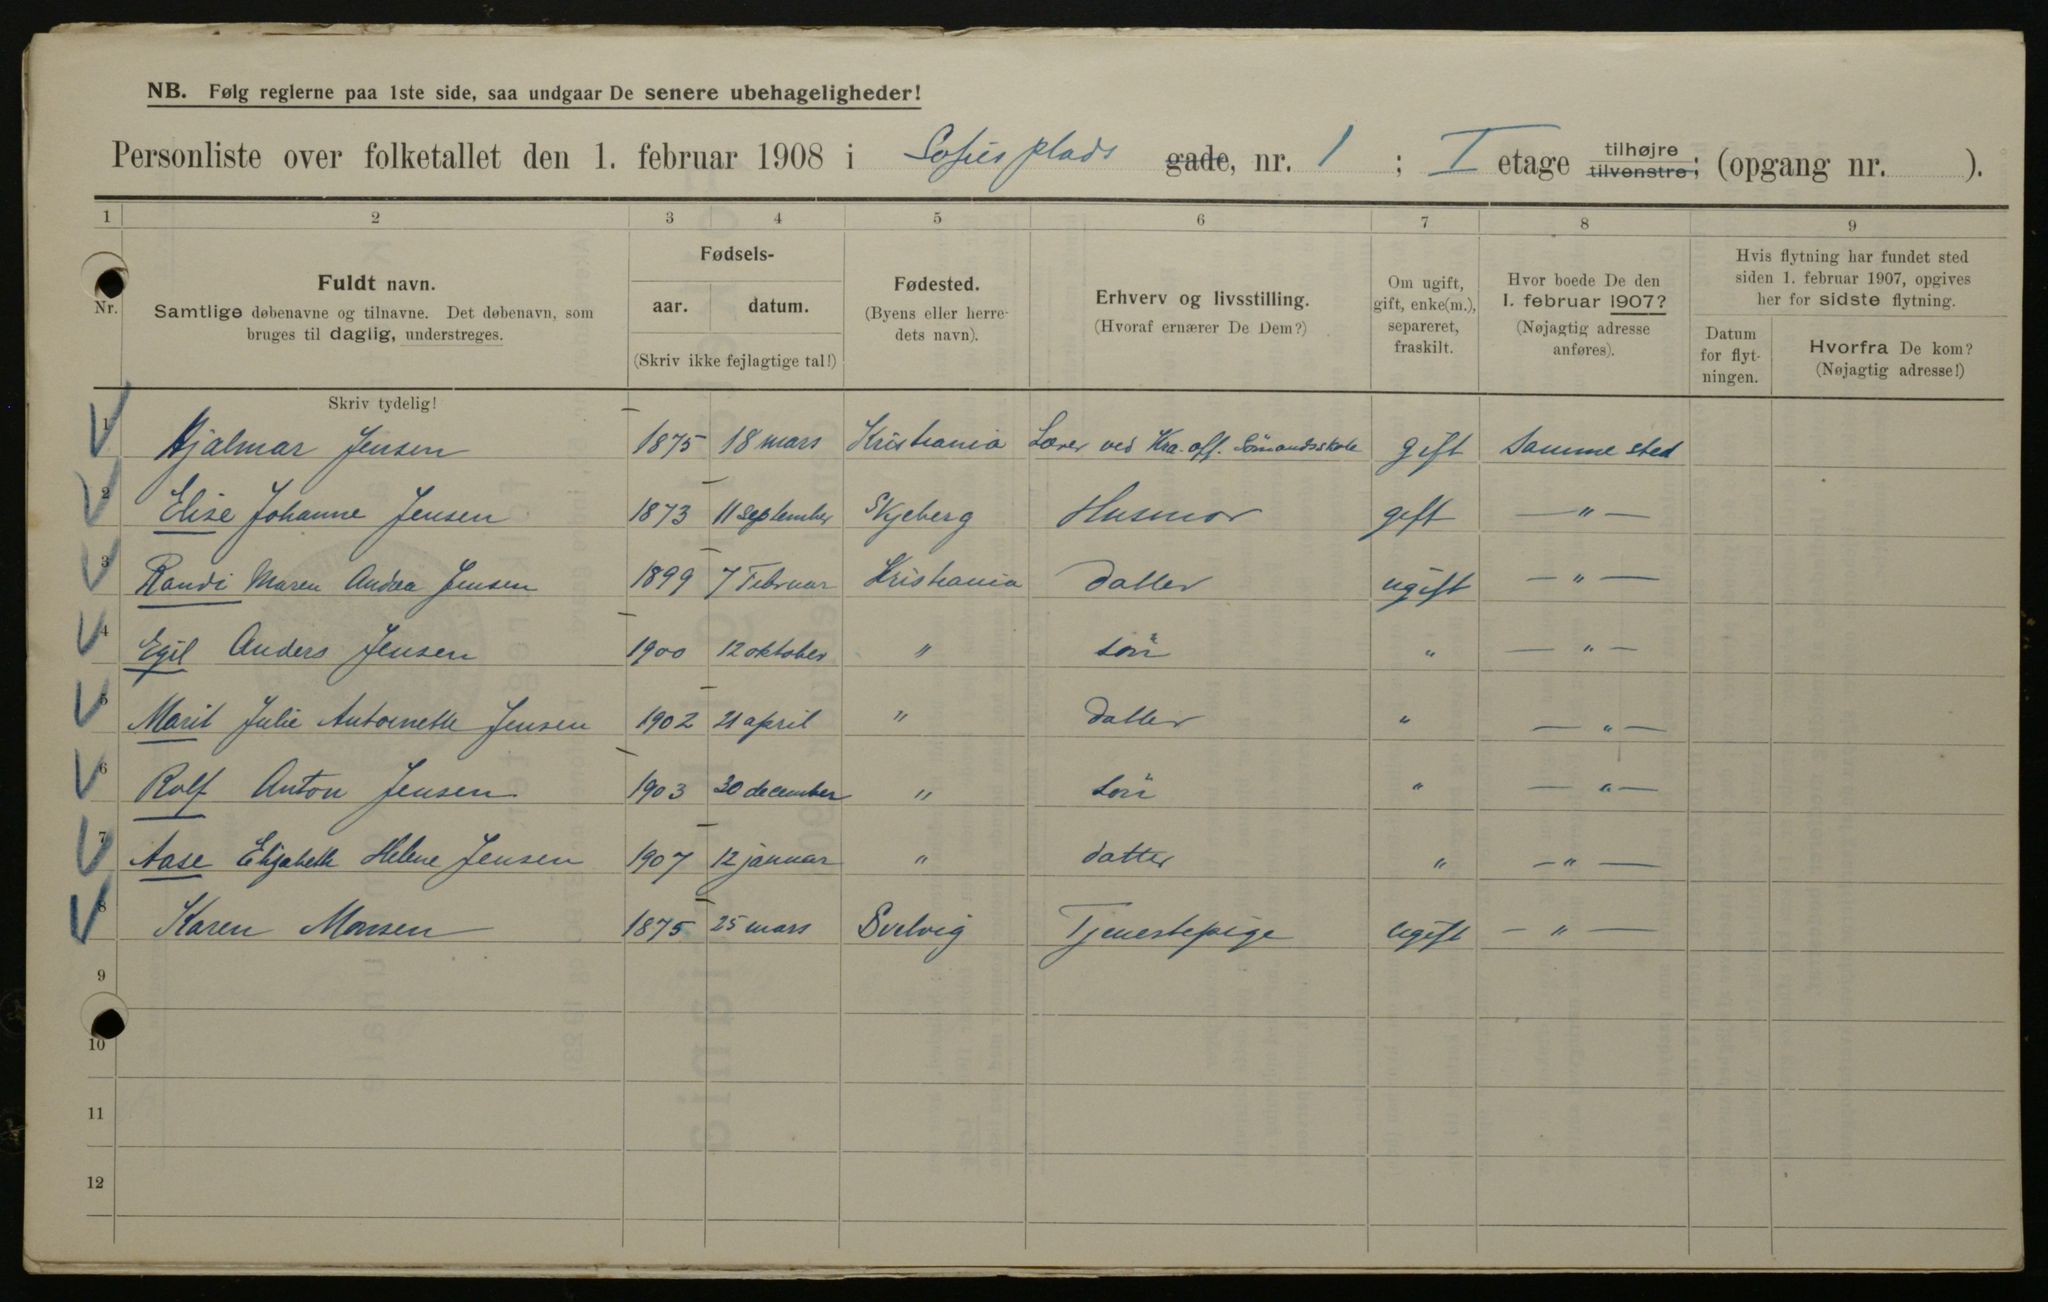 NB. Følg reglerne paa 1ste side, saa undgaar De senere ubehageligheder!
Personliste over folketallet den 1. februar 1908 i Sofies plads gade, nr. 1 ; I etage tilhøjre tilvenstre; (opgang nr. ).
1 2 3 4 5 6 7 8 9
Nr. Fuldt navn. Samtlige døbenavne og tilnavne. Det døbenavn, som bruges til daglig, understreges.
Fødsels- aar. datum. (Skriv ikke fejlagtige tal!)
Fødested. (Byens eller herredets navn).
Erhverv og livsstilling. (Hvoraf ernærer De Dem?)
Om ugift, gift, enke(m.), separeret, fraskilt.
Hvor boede De den 1. februar 1907? (Nøjagtig adresse anføres).
Hvis flytning har fundet sted siden 1. februar 1907, opgives her for sidste flytning.
Datum for flytningen. Hvorfra De kom? (Nøjagtig adresse!)
Skriv tydelig!
1 Hjalmar Jensen 1875 18 mars Kristiania Lærer ved Kra. off. Sømandsskole gift Samme sted
2 Elise Johanne Jensen 1873 11 september Skjeberg Husmor gift — " —
3 Randi Maren Andrea Jensen 1899 7 Februar Kristiania datter ugift — " —
4 Egil Anders Jensen 1900 12 oktober " søn " — " —
5 Marit Julie Antoinette Jensen 1902 21 april " datter " — " —
6 Rolf Anton Jensen 1903 30 december " søn " — " —
7 Aase Elisabeth Helene Jensen 1907 12 januar " datter " — " —
8 Karen Monsen 1875 25 mars Svelvig Tjenestepige ugift — " —
9
10
11
12